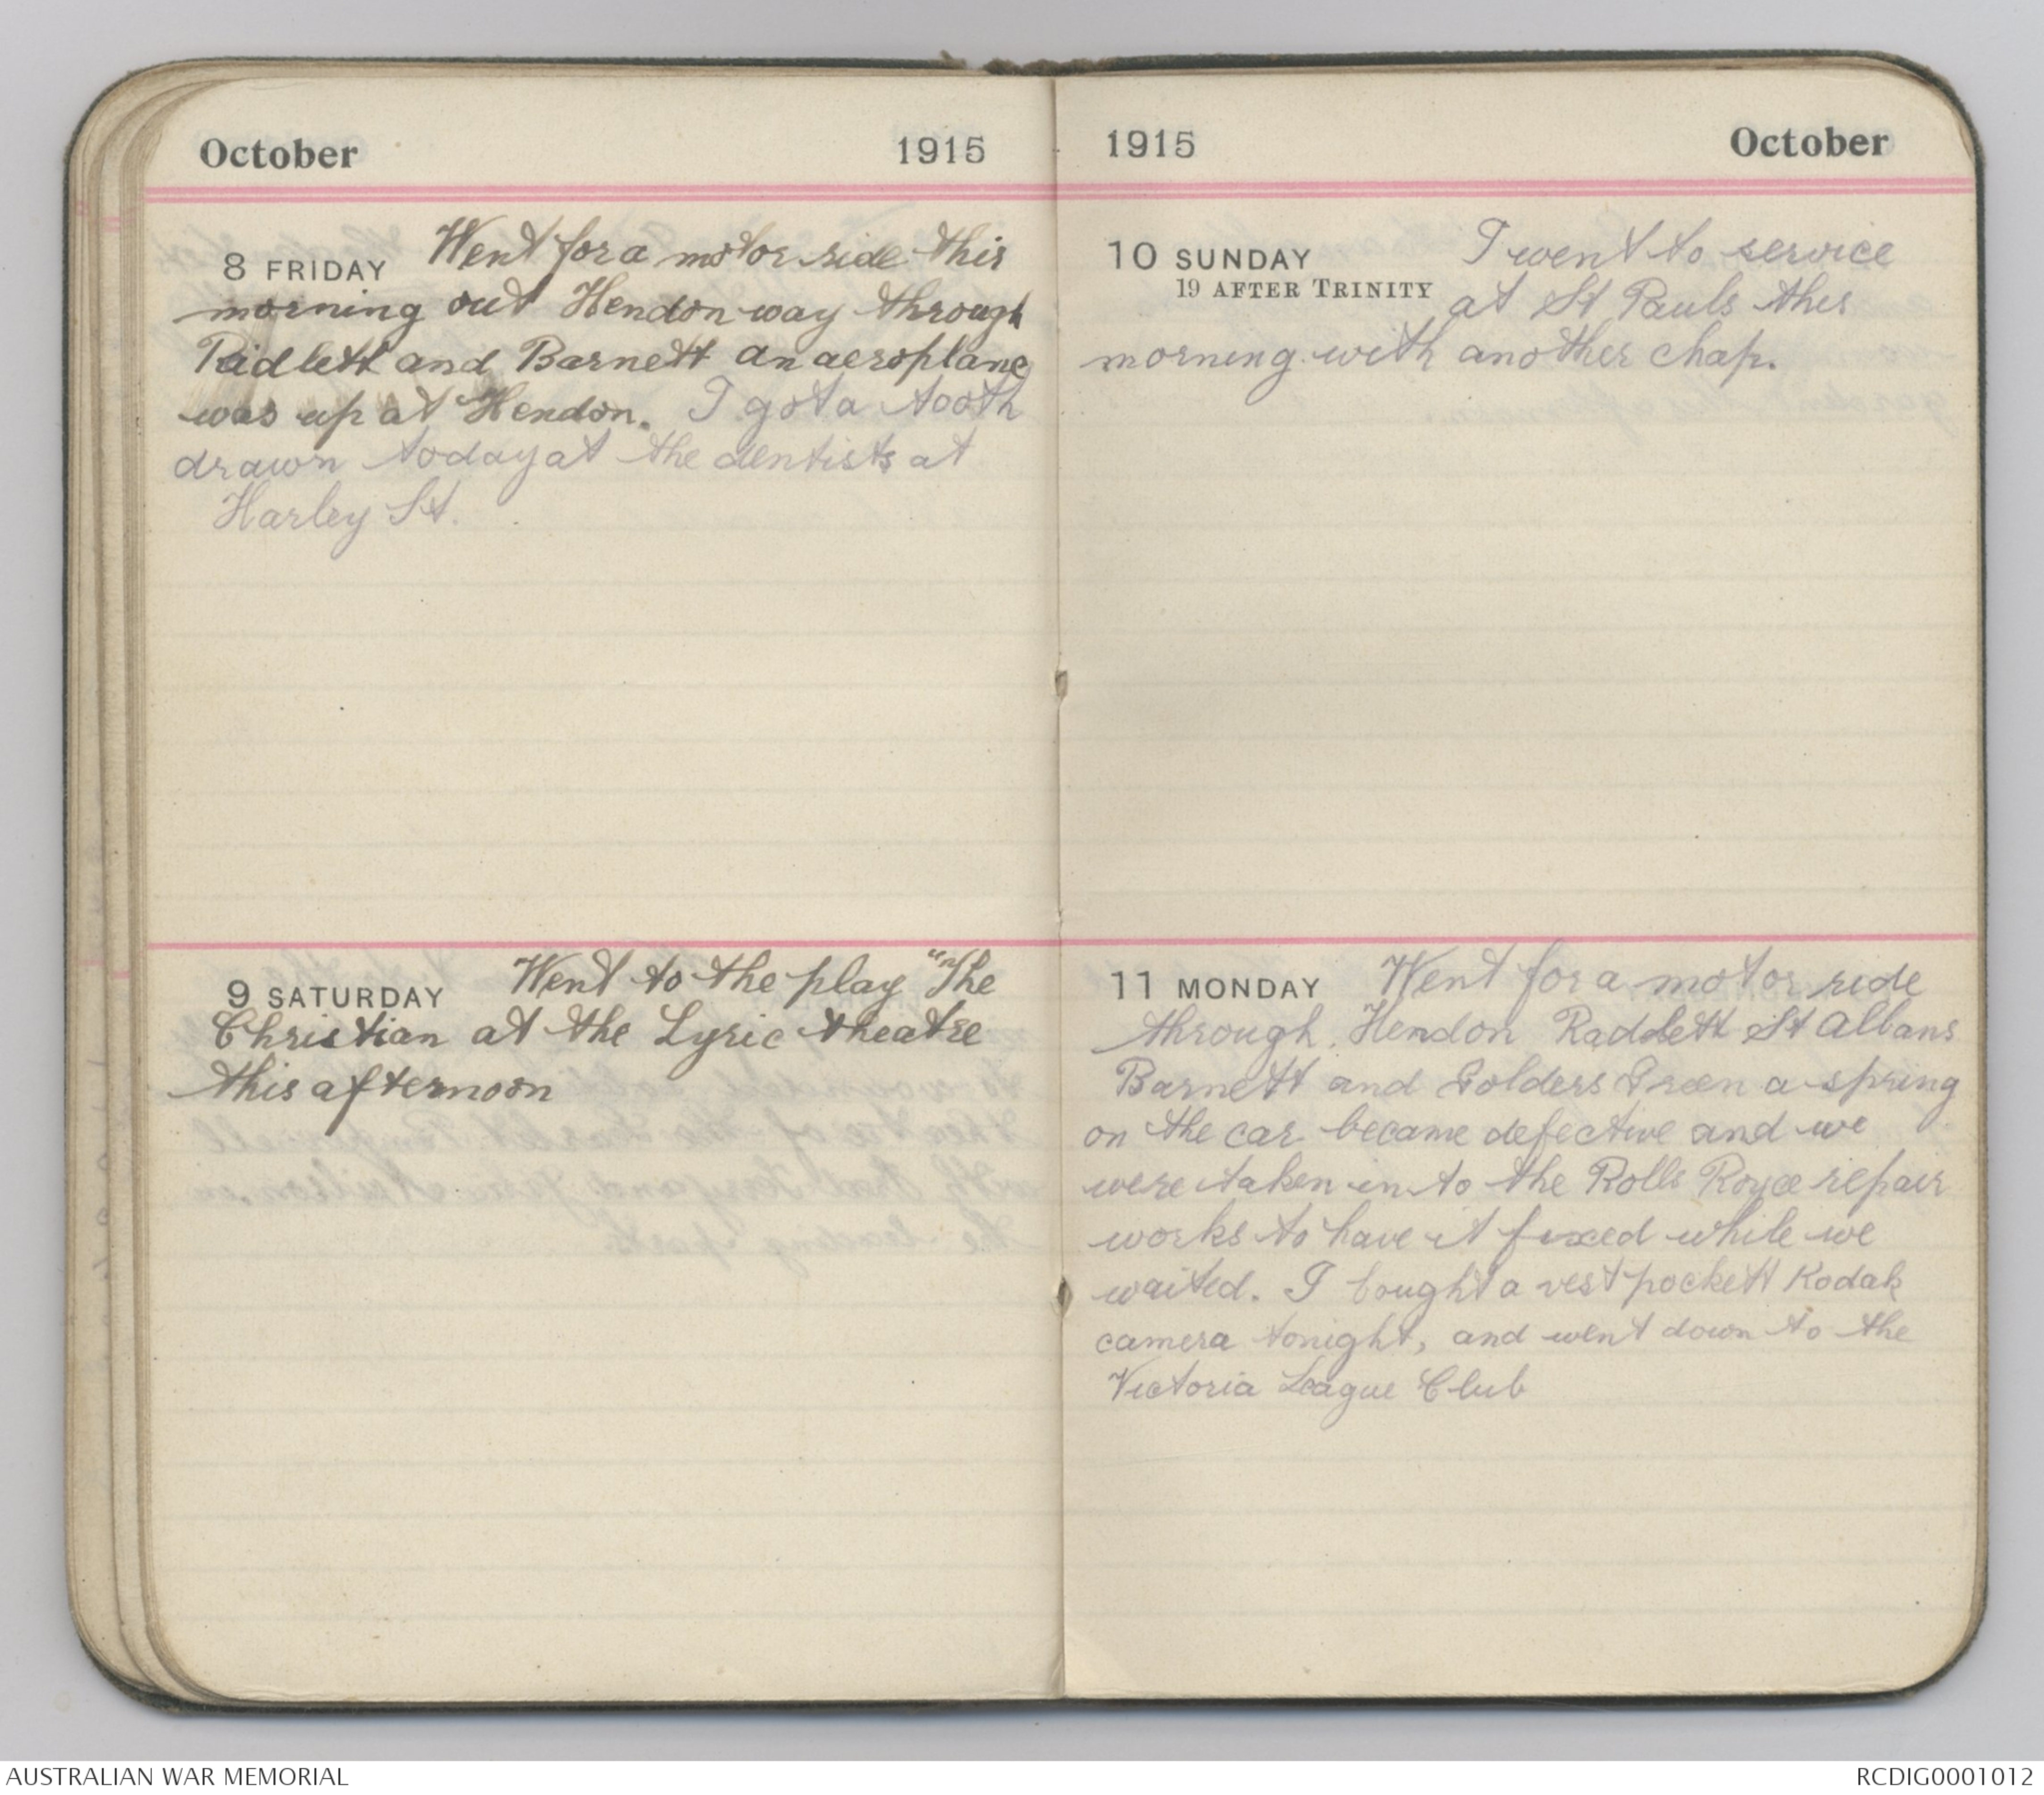 October 1915
8 FRIDAY Went for a motor ride this
morning out Hendon way through
Radlett and Barnett an aeroplane
was up at Hendon. I got a tooth
drawn today at the dentists at
Harley St.
9 SATURDAY Went to the play "The
Christian at the Lyric theatre
this afternoon
1915 October
10 SUNDAY I went to service
19 AFTER TRINITY at St Pauls this
morning with another chap.
11 MONDAY Went for a motor ride
through Hendon Raddlett St Albans
Barnett and Golders Green a spring
on the car became defective and we
were taken in to the Rolls Royce repair
works to have it fixed while we
waited. I bought a vest pockett Kodak
camera tonight, and went down to the
Victoria League Club
AUSTRALIAN WAR MEMORIAL RCDIG0001012